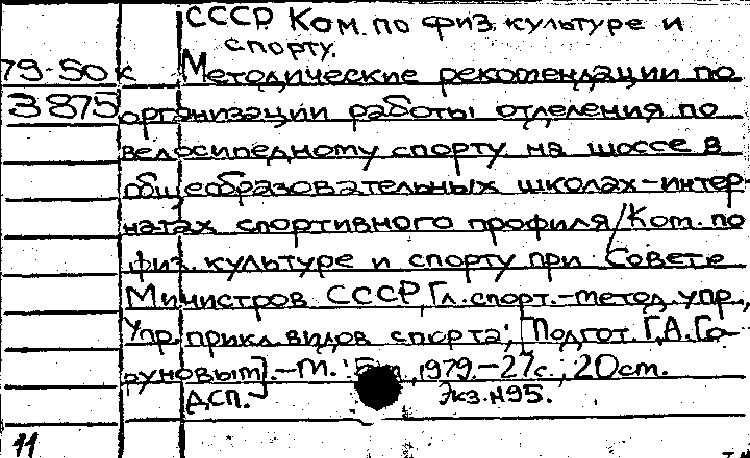 СССР Ком. по физ. культуре и
спорту.
79-50к Методические рекомендации по
3875 организации работы отделения по
велосипедному спорту на шоссе в
общеобразовательных школах-интер-
натах спортивного профиля/Ком. по
физ. культуре и спорту при Совете
Министров СССР, Гл. спорт.-метод. упр.,
Упр. прикл. видов спорта; [Подгот. Г.А. Го-
руновым].-М. 1979.-27с.; 20см.
ДСП. Экз. №95.
11